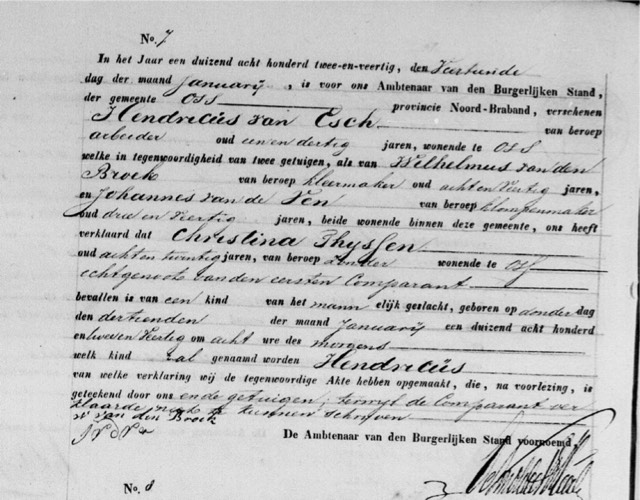 No. 7
In het Jaar een duizend acht honderd twee-en-veertig, den Veertiende
dag der maand Januarij, is voor ons Ambtenaar van den Burgerlijken Stand,
der gemeente Oss provincie Noord-Braband, verschenen
Hendricus van Esch van beroep
arbeider oud een en dertig jaren, wonende te Oss
welke in tegenwoordigheid van twee getuigen, als van Wilhelmus van den
Broek van beroep kleermaker oud acht en Veertig jaren,
en Johannes van de Ven van beroep klompenmaker
oud drie en Veertig jaren, beide wonende binnen deze gemeente, ons heeft
verklaard dat Christina Thyssen
oud acht en twintig jaren, van beroep zonder wonende te Oss
echtgenoote van den eersten Comparant
bevallen is van een kind van het mannelijk geslacht, geboren op donderdag
den dertienden der maand Januarij een duizend acht honderd
en twee en Veertig om acht ure des morgens
welk kind zal genaamd worden Hendricus
van welke verklaring wij de tegenwoordige Akte hebben opgemaakt, die, na voorlezing, is
geteekend door ons ende getuigen; terwyl de Comparant ver
klaarde niet te kunnen schrijven
W van den Broek
De Ambtenaar van den Burgerlijken Stand voornoemd,
No. 8